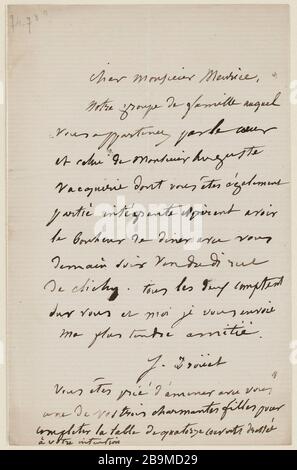 cher Monsieur Meurice,
Notre groupe de famille auquel
vous appartenez par le cœur
et celui de Monsieur Auguste
Vacquerie dont vous êtes également
partie intégrante espèrent avoir
le bonheur de diner avec vous
demain soir Vendredi rue
de clichy. tous les deux comptent
sur vous et moi je vous envoie
ma plus tendre amitié.
J. Drouet
Vous êtes prié d'amener avec vous
une de vos trois charmantes filles pour
compléter la table de quatorze couverts dressée
à votre intention
alamy
Image ID: 2B9MD29
www.alamy.com